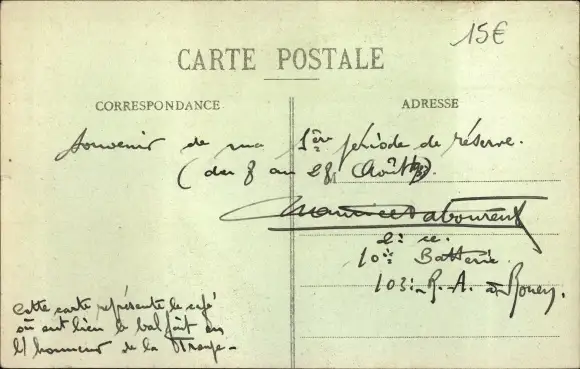 15€
CARTE POSTALE
CORRESPONDANCE
ADRESSE
Souvenir de ma 1ère période de réserve.
(du 8 au 28 Août).
10e Batterie
103e R. A. à Rouen
Cette carte représente le café
où eut lieu le bal fait en
l'honneur de la